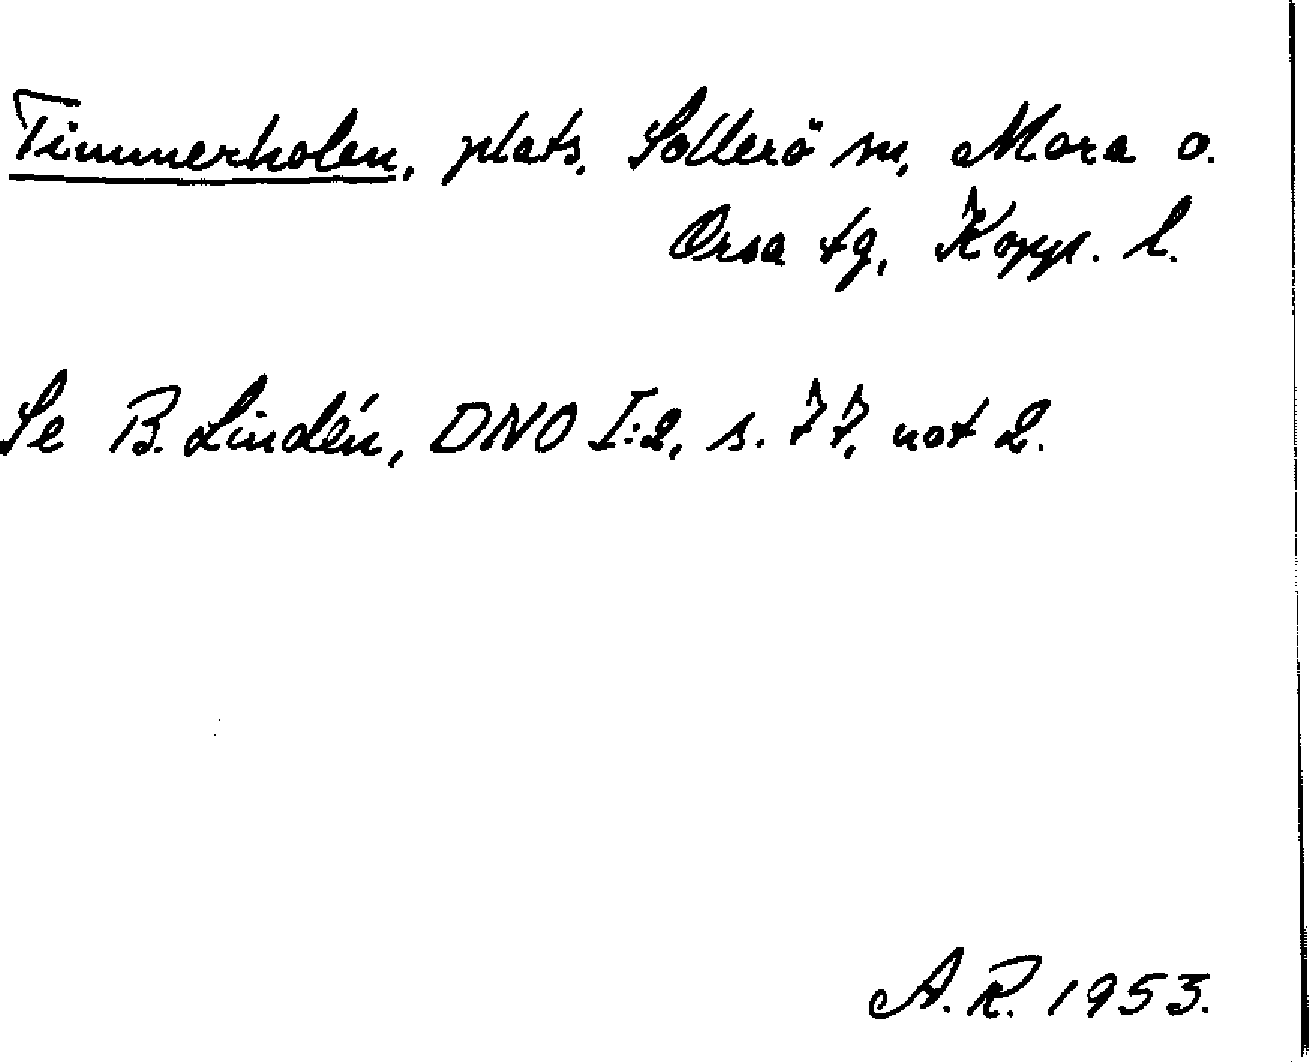 Timmerholen, plats, Sollerö sn, Mora o.
Orsa tg, Kopp. l.
Se B. Lindén, DNO I:2, s. 77, not 2.
A.R. 1953.